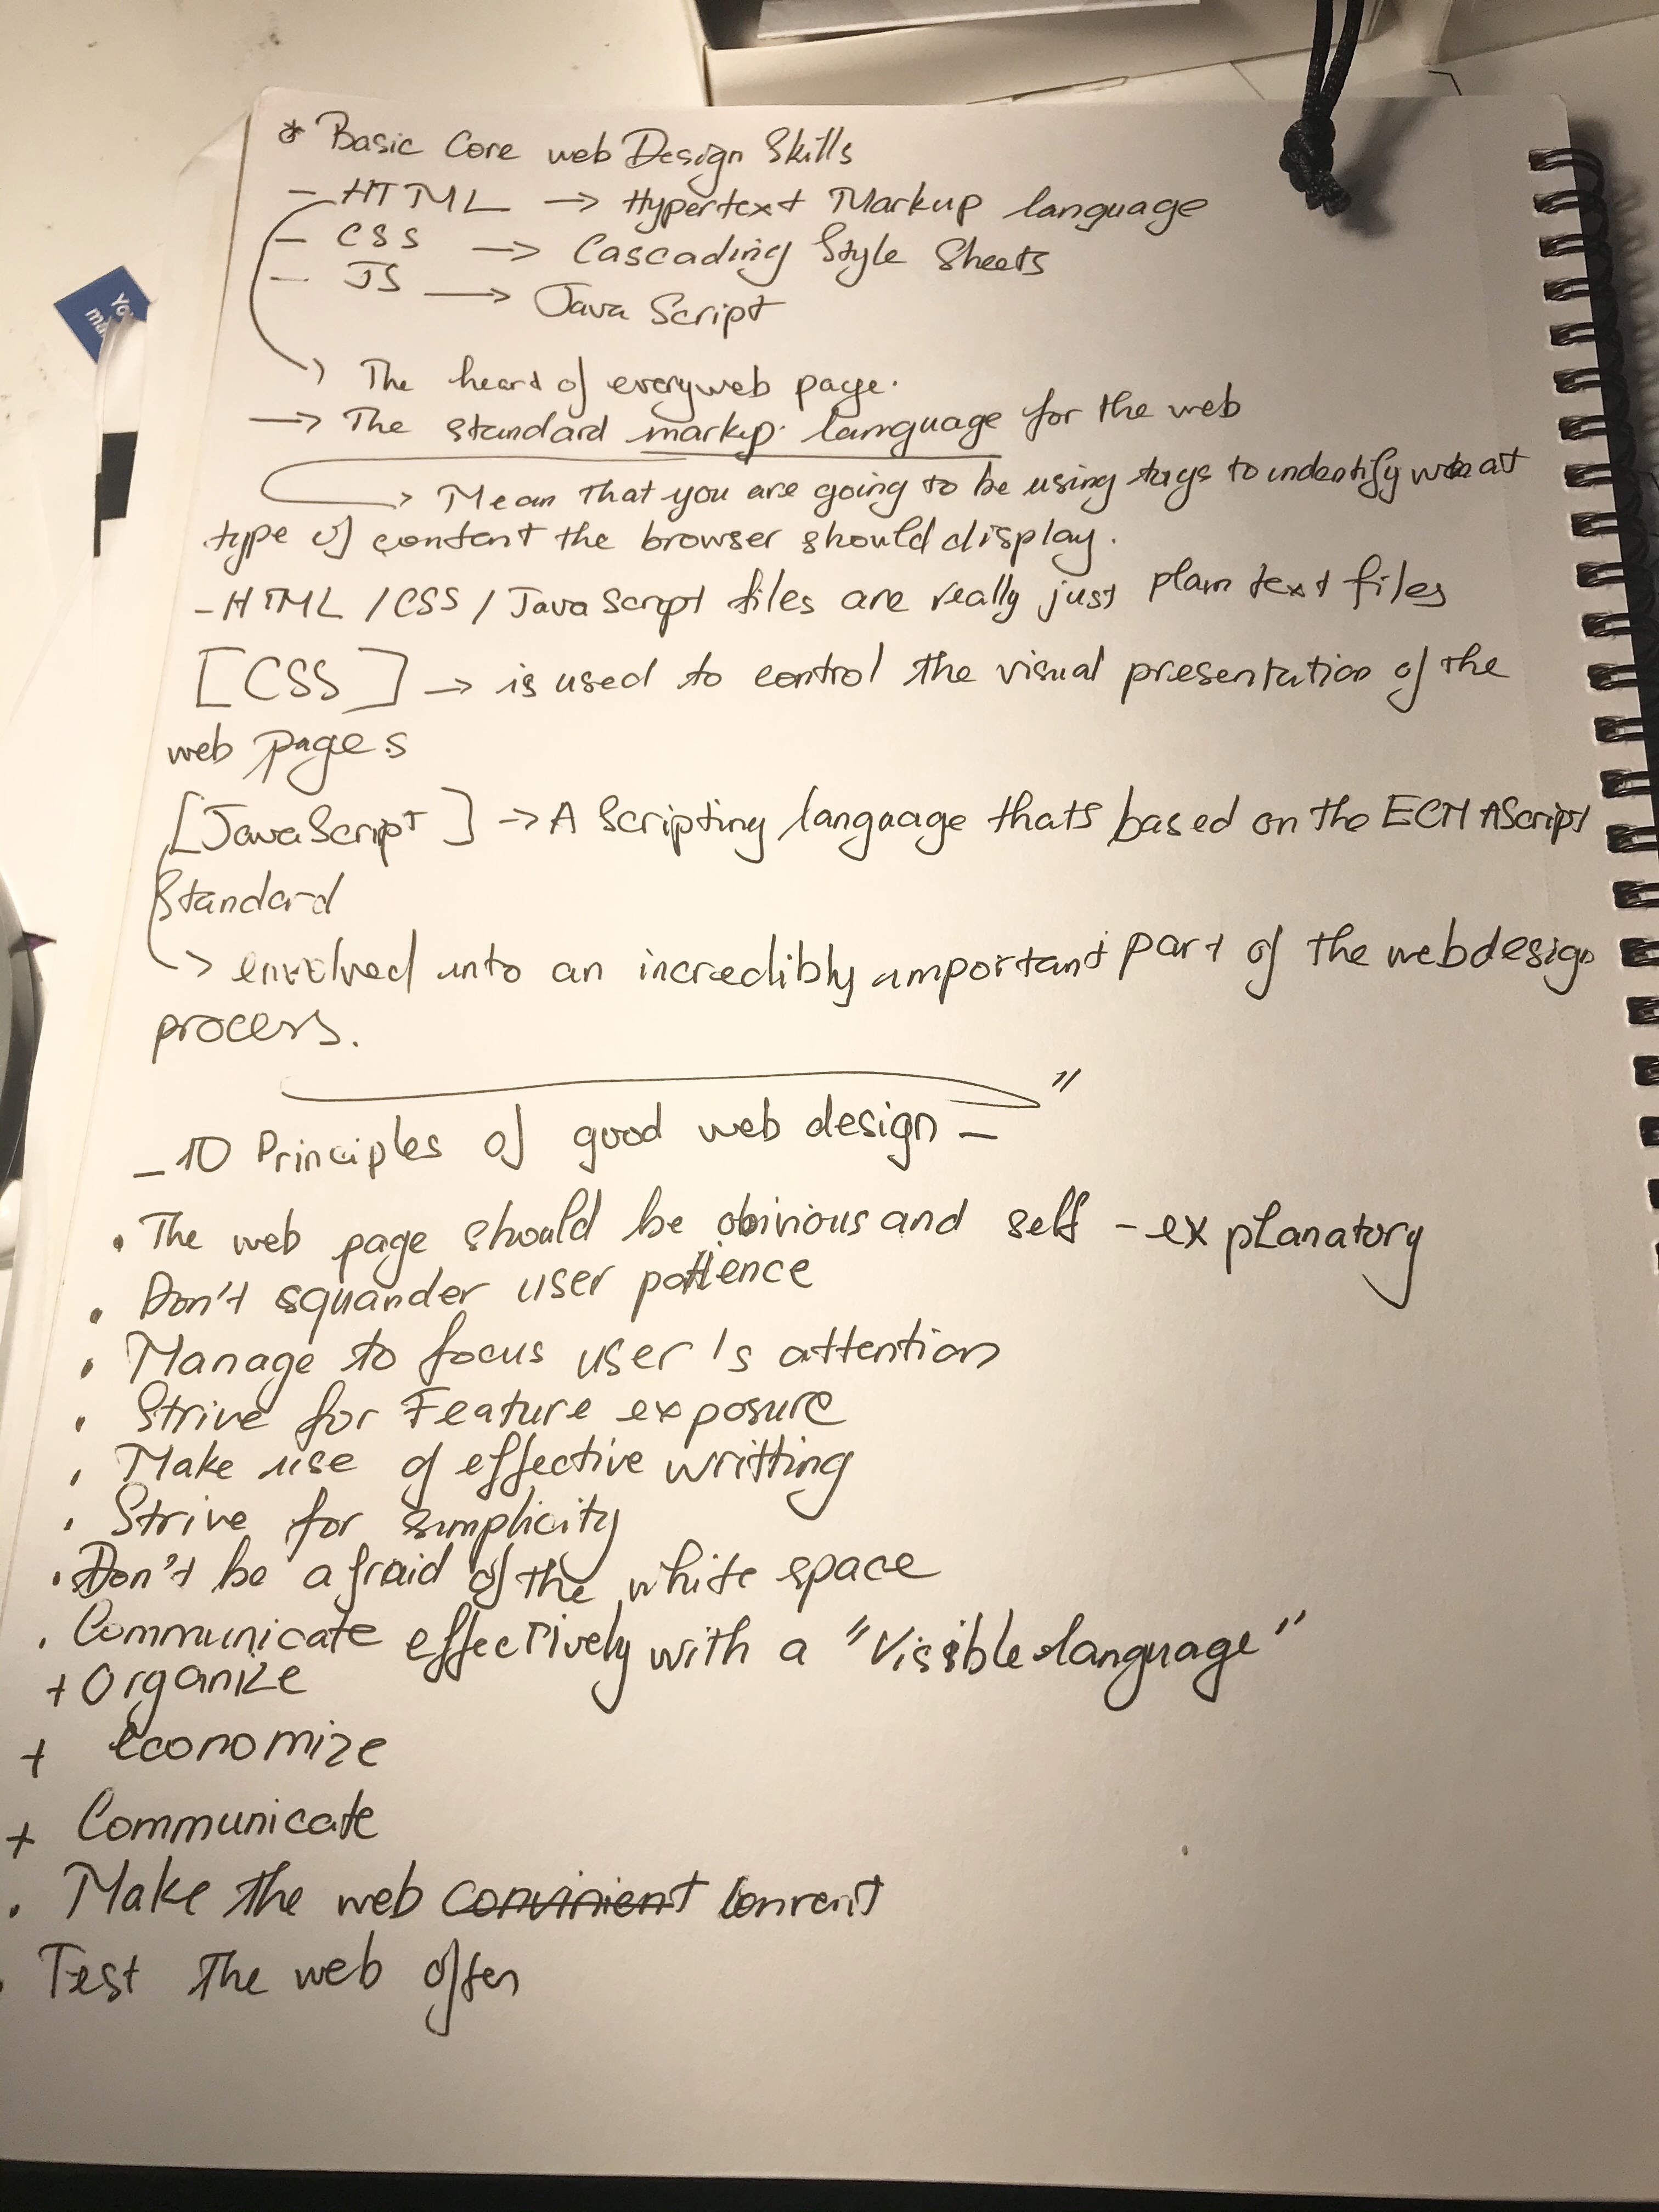 * Basic Core web Design Skills
- HTML → Hypertext Markup language
- CSS → Cascading Style Sheets
- JS → Java Script
→ The heard of everyweb page.
→ The standard markup language for the web
→ Mean that you are going to be using tags to indentify what
type of content the browser should display.
- HTML / CSS / JavaScript files are really just plain text files
[CSS] → is used to control the visual presentation of the
web pages
[JavaScript] → A Scripting language thats based on the ECMAScript
Standard
→ envolved into an incredibly important part of the webdesign
process.
- 10 Principles of good web design -
. The web page should be obivious and self - explanatory
. Don't squander user patience
. Manage to focus user's attention
. Strive for Feature exposure
. Make use of effective writting
. Strive for simplicity
. Don't be afraid of the white space
. Communicate effectively with a "Visible language"
+ Organize
+ economize
+ Communicate
. Make the web convinient
. Test the web often